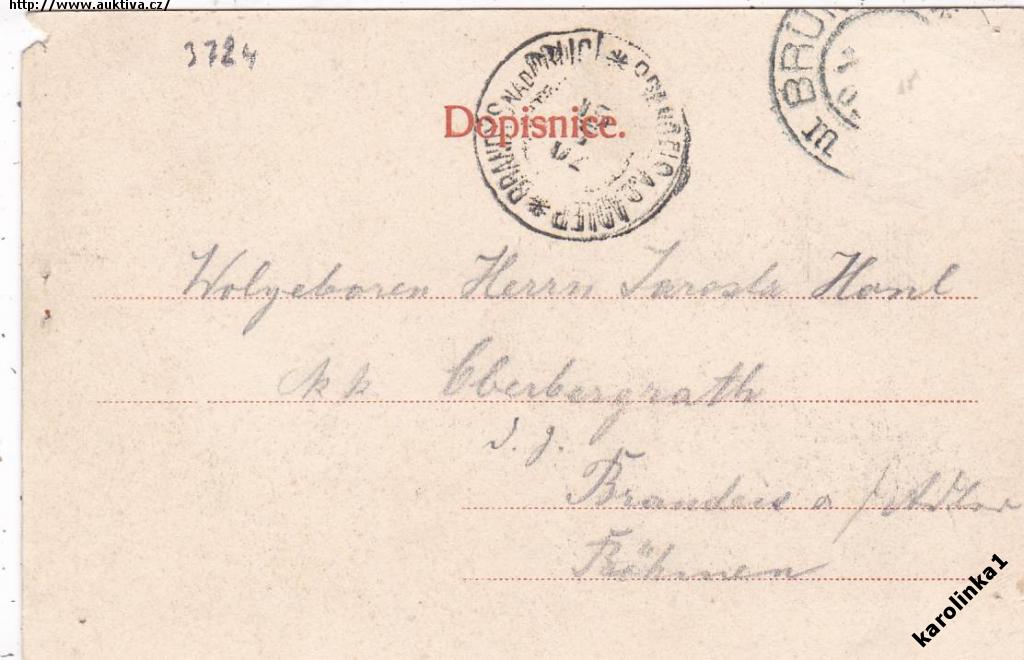 http://www.auktiva.cz/
3724
Dopisnice.
BRANDEIS A.D. ADLER * BRANDÝS NAD ORLICÍ *
BRÜN
Wolgeboren Herrn Jarosla Hanl
kk Oberbergrath
d. J.
Brandeis a/Adler
Böhmen
karolinka1